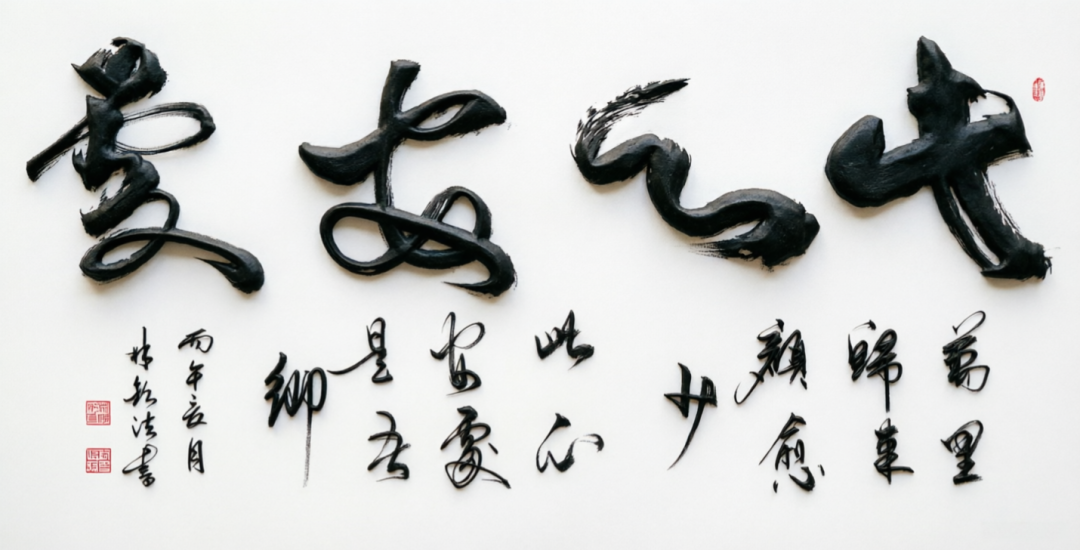 此心安處
萬里
歸來
顏愈
少
此心
安處
是吾
鄉
丙午亥月
林 法書